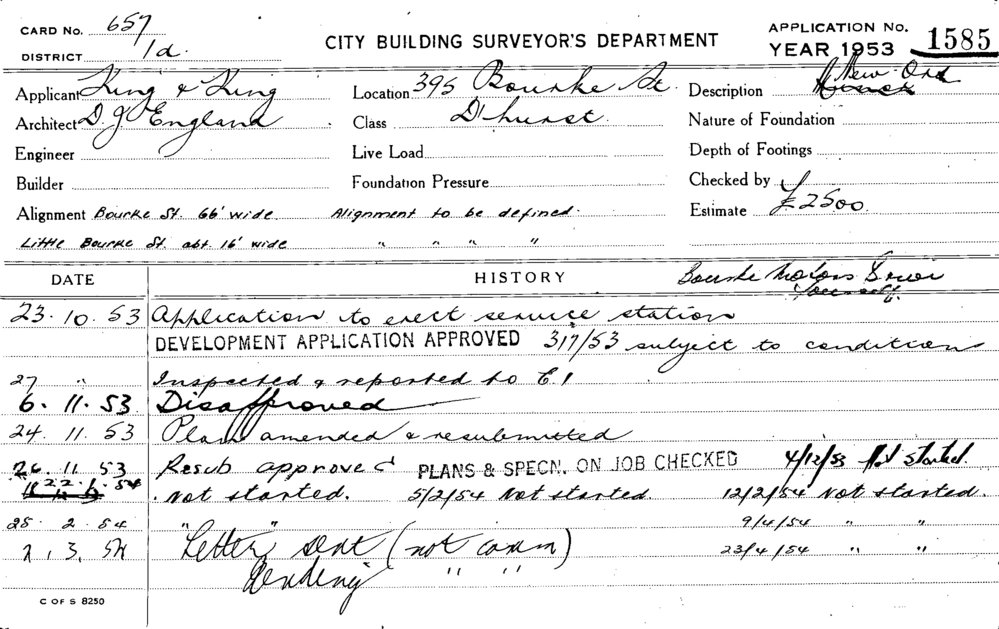 CARD No. 657
DISTRICT 1d.
CITY BUILDING SURVEYOR'S DEPARTMENT
APPLICATION No.
YEAR 1953 1585
Applicant King & King
Location 395 Bourke St.
Description New Ord
Architect D. J England
Class D'hurst.
Nature of Foundation
Engineer
Live Load
Depth of Footings
Builder
Foundation Pressure
Checked by
Alignment Bourke St. 66' wide Alignment to be defined.
Estimate £2500
Little Bourke St. abt 16' wide " " " "
DATE HISTORY Bourke Motors
23. 10. 53 Application to erect service station
DEVELOPMENT APPLICATION APPROVED 317/53 subject to conditions
27 " Inspected & reported to C.I
6. 11. 53 Disapproved
24. 11. 53 Plan amended & resubmitted
26. 11. 53 Resub approved PLANS & SPECN. ON JOB CHECKED 4/12/53 Not started.
22. 1. 54 Not started. 5/2/54 Not started. 12/2/54 Not started.
25. 2. 54 " " 9/4/54 " "
2. 3. 54 Letter sent (not comm) 23/4/54 " "
Pending " "
C OF S 8250